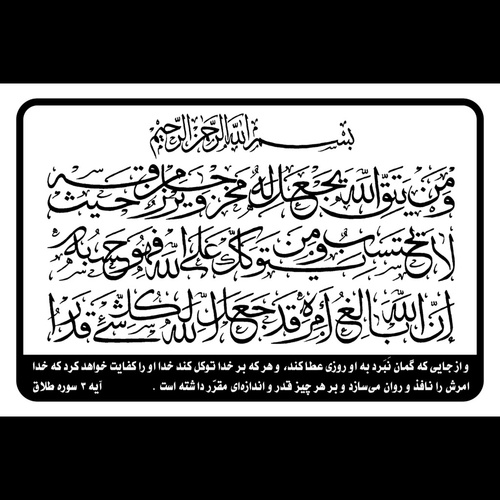 بسم الله الرحمن الرحيم
ومن يتق الله يجعل له مخرجا ويرزقه من حيث
لا يحتسب ومن يتوكل على الله فهو حسبه
إن الله بالغ أمره قد جعل الله لكل شيء قدرا
و از جایی که گمان نَبَرد به او روزی عطا کند، و هر که بر خدا توکل کند خدا او را کفایت خواهد کرد که خدا
امرش را نافذ و روان می‌سازد و بر هر چیز قدر و اندازه‌ای مقرّر داشته است . آیه ۳ سوره طلاق